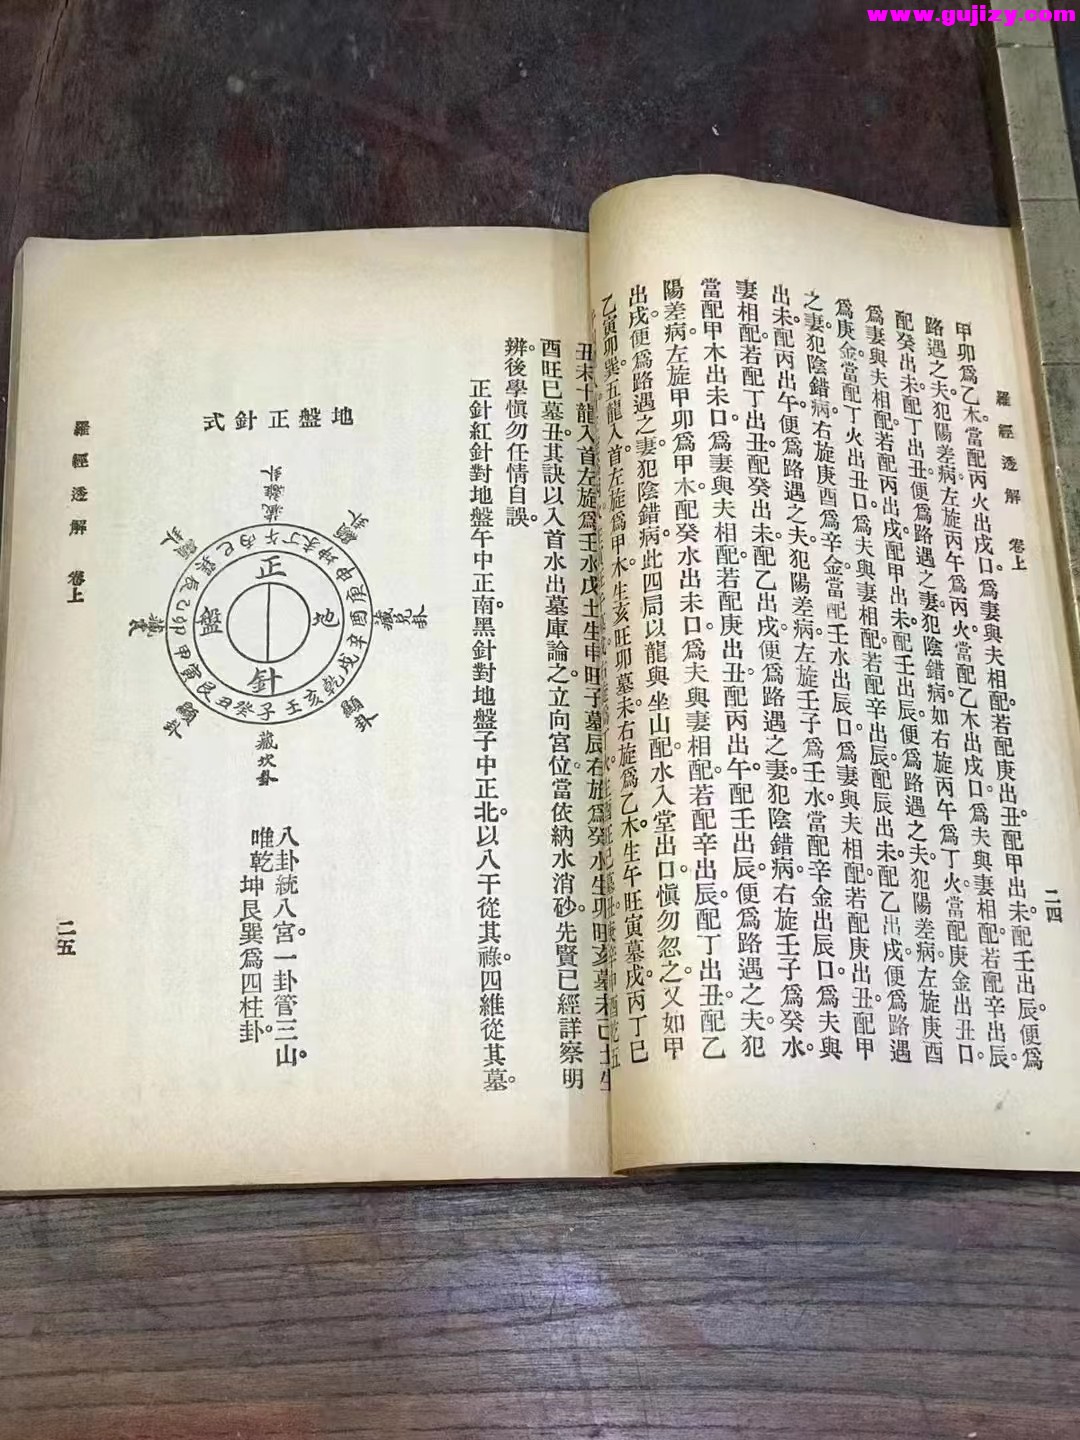 www.gujizy.com
羅經透解 卷上
二四
甲卯爲乙木當配丙火出戌口爲妻與夫相配若配庚出丑配甲出未配壬出辰便爲
路遇之夫犯陽差病左旋丙午爲丙火當配乙木出戌口爲夫與妻相配若配辛出辰
配癸出未配丁出丑便爲路遇之妻犯陰錯病如右旋丙午爲丁火當配庚金出丑口
爲妻與夫相配若配丙出戌配甲出未配壬出辰便爲路遇之夫犯陽差病左旋庚酉
爲庚金當配丁火出丑口爲夫與妻相配若配辛出辰配辰出未配乙出戌便爲路遇
之妻犯陰錯病右旋庚酉爲辛金當配壬水出辰口爲妻與夫相配若配庚出丑配甲
出未配丙出午便爲路遇之夫犯陽差病左旋壬子爲壬水當配辛金出辰口爲夫與
妻相配若配丁出丑配癸出未配乙出戌便爲路遇之妻犯陰錯病右旋壬子爲癸水
當配甲木出未口爲妻與夫相配若配庚出丑配丙出午配壬出辰便爲路遇之夫犯
陽差病左旋甲卯爲甲木配癸水出未口爲夫與妻相配若配辛出辰配丁出丑配乙
出戌便爲路遇之妻犯陰錯病此四局以龍與坐山配水入堂出口愼勿忽之又如甲
乙寅卯巽五龍入首左旋爲甲木生亥旺卯墓未右旋爲乙木生午旺寅墓戌丙丁巳
丑未十龍入首左旋爲壬水戊土生申旺子墓辰右旋爲癸水生卯旺亥墓未己土生
酉旺巳墓丑其訣以入首水出墓庫論之立向宮位當依納水消砂先賢已經詳察明
辨後學愼勿任情自誤
正針紅針對地盤午中正南黑針對地盤子中正北以八干從其祿四維從其墓
地盤正針式
藏離卦
顯卦
藏兌卦
顯卦
藏坎卦
顯卦
顯卦
午丁未坤申庚酉辛戌乾亥壬子癸丑艮寅甲卯乙辰巽巳丙
正
地
盤
針
八卦統八宮一卦管三山
唯乾坤艮巽爲四柱卦
羅經透解 卷上
二五